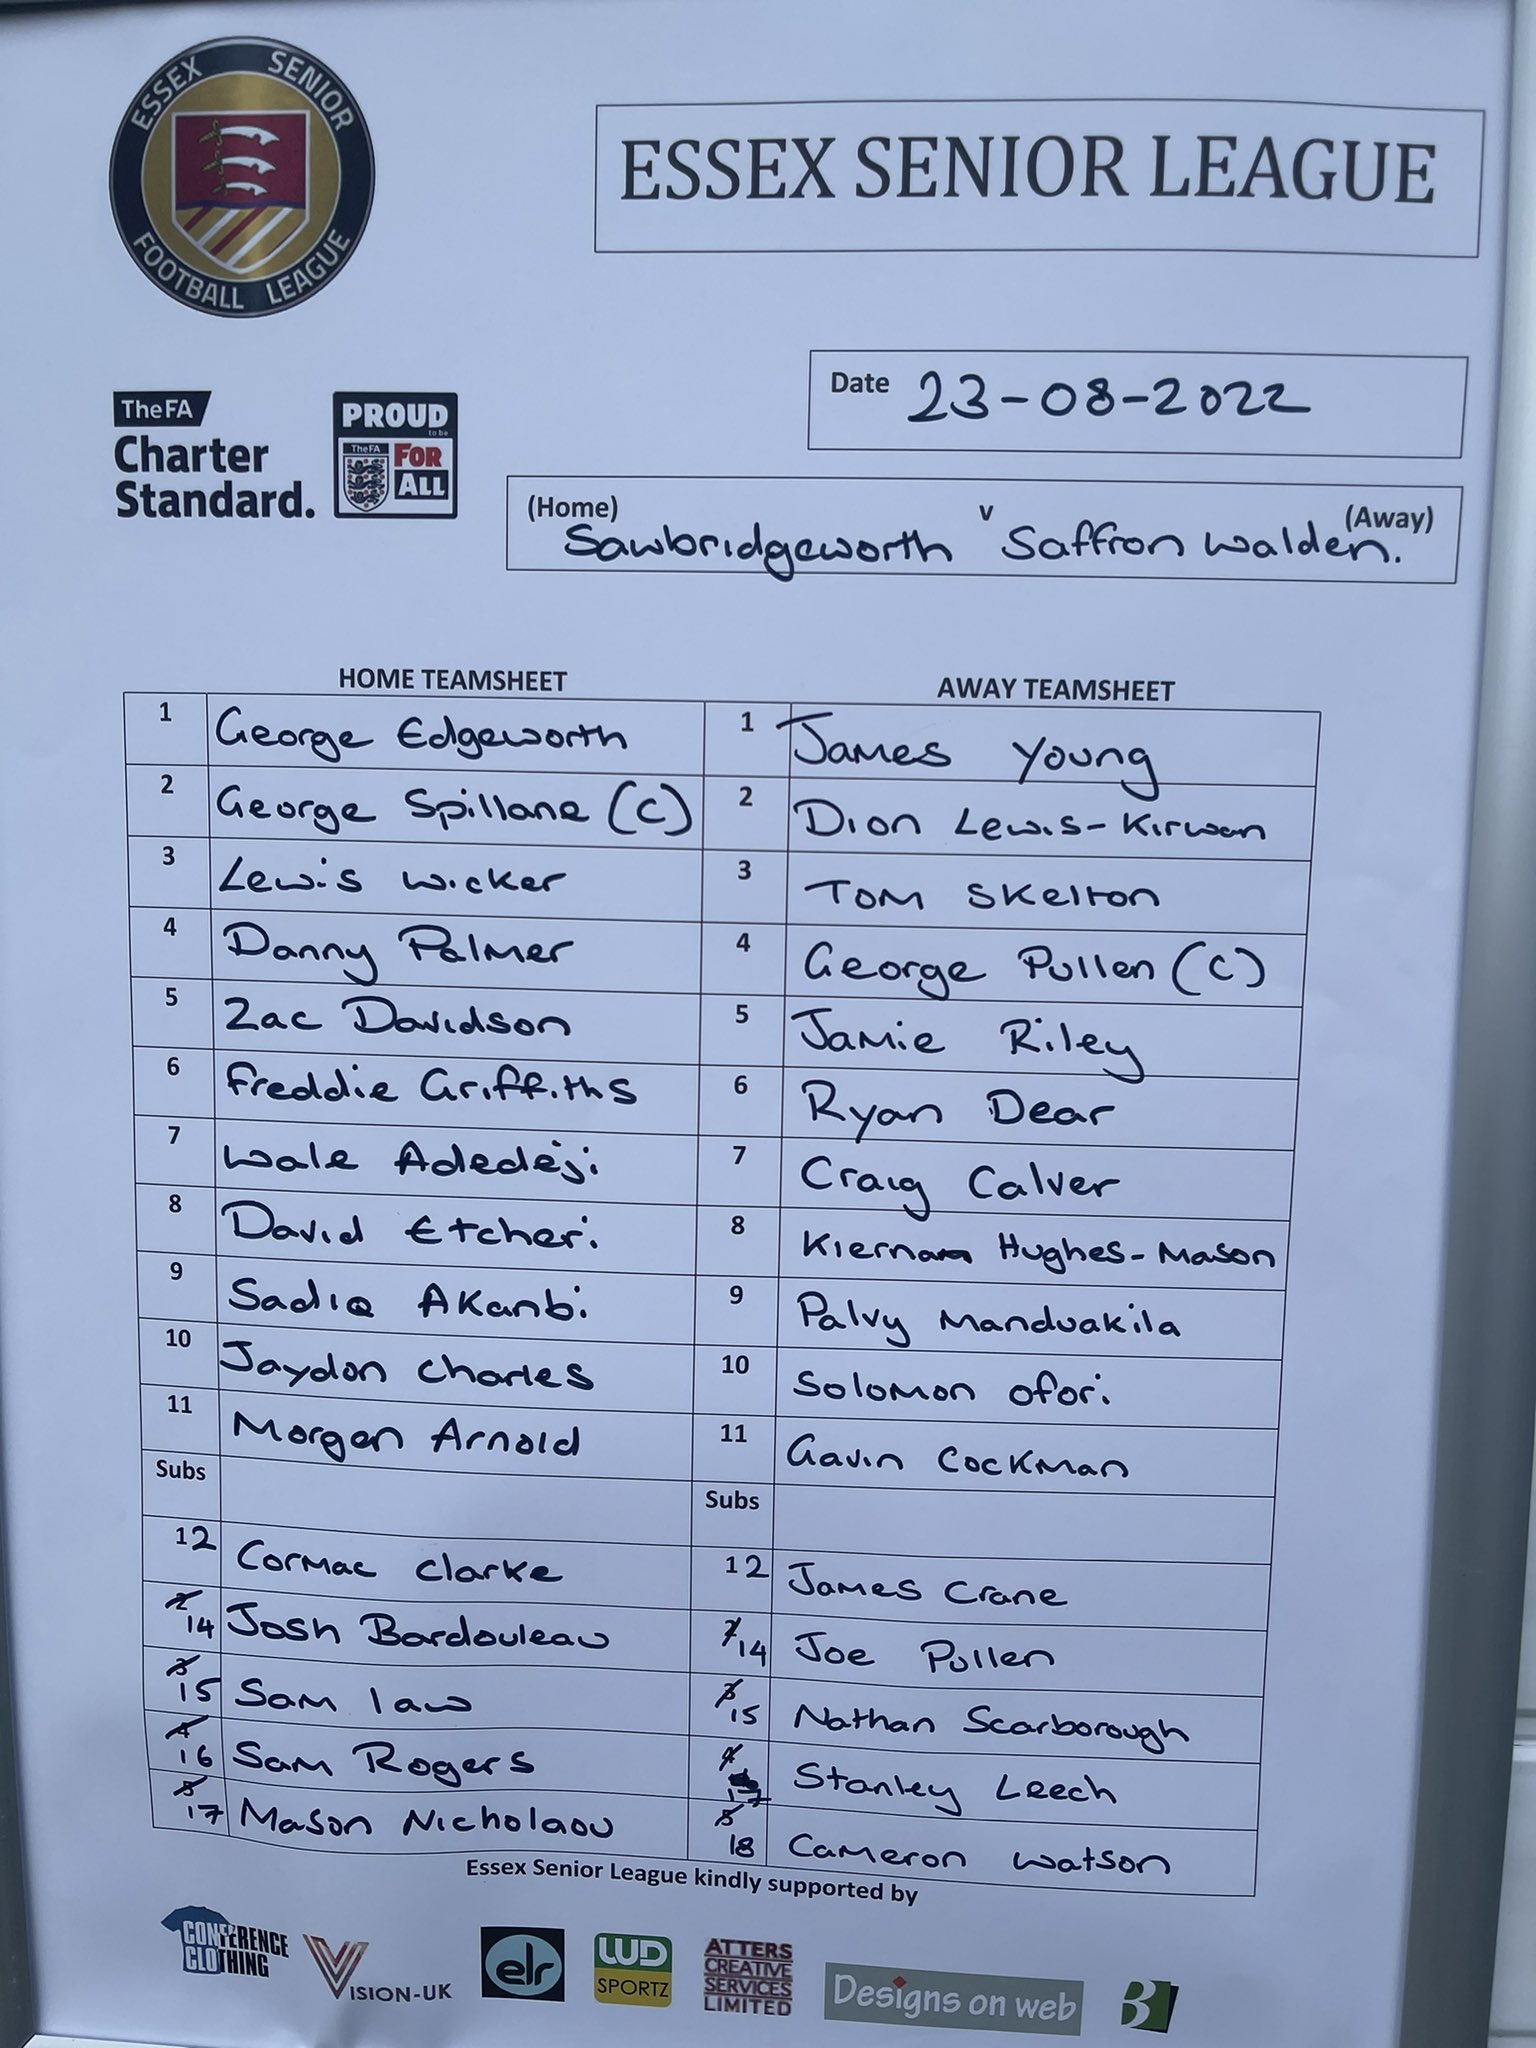 ESSEX SENIOR
FOOTBALL LEAGUE
ESSEX SENIOR LEAGUE
The FA
Charter
Standard.
PROUD
to be
The FA
FOR
ALL
Date 23-08-2022
(Home) v (Away)
Sawbridgeworth Saffron Walden.
HOME TEAMSHEET AWAY TEAMSHEET
1 George Edgeworth 1 James Young
2 George Spillane (C) 2 Dion Lewis-Kirwan
3 Lewis Wicker 3 Tom Skelton
4 Danny Palmer 4 George Pullen (C)
5 Zac Davidson 5 Jamie Riley
6 Freddie Griffiths 6 Ryan Dear
7 Wale Adedeji 7 Craig Calver
8 David Etcheri 8 Kiernan Hughes-Mason
9 Sadiq Akanbi 9 Palvy Manduakila
10 Jaydon Charles 10 Solomon Ofori
11 Morgan Arnold 11 Gavin Cockman
Subs Subs
12 Cormac Clarke 12 James Crane
14 Josh Bardouleau 14 Joe Pullen
15 Sam Law 15 Nathan Scarborough
16 Sam Rogers 17 Stanley Leech
17 Mason Nicholaou 18 Cameron Watson
Essex Senior League kindly supported by
CONFERENCE
CLOTHING
VISION-UK
elr
LUD
SPORTZ
ATTERS
CREATIVE
SERVICES
LIMITED
Designs on web